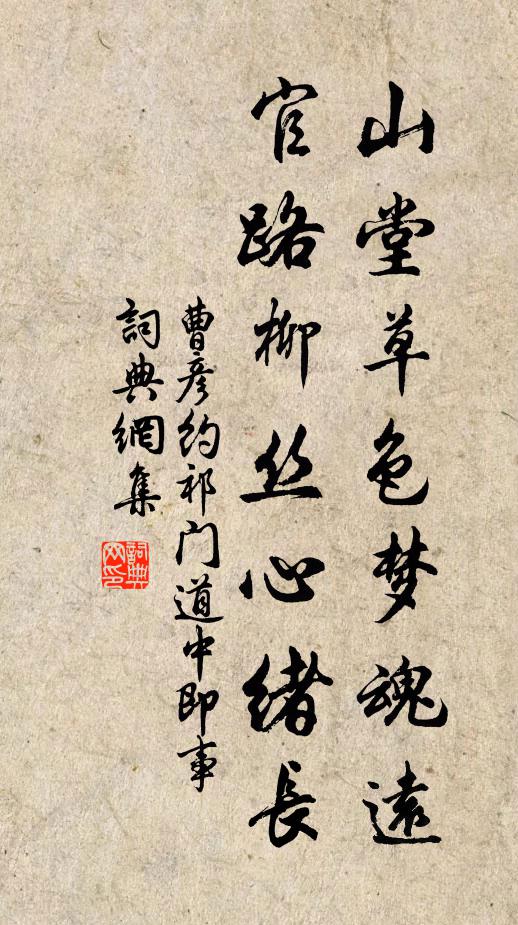 山堂草色梦魂遠
官路柳丝心緒長
曹彦约祁门道中即事
詞典網集
詞典網印